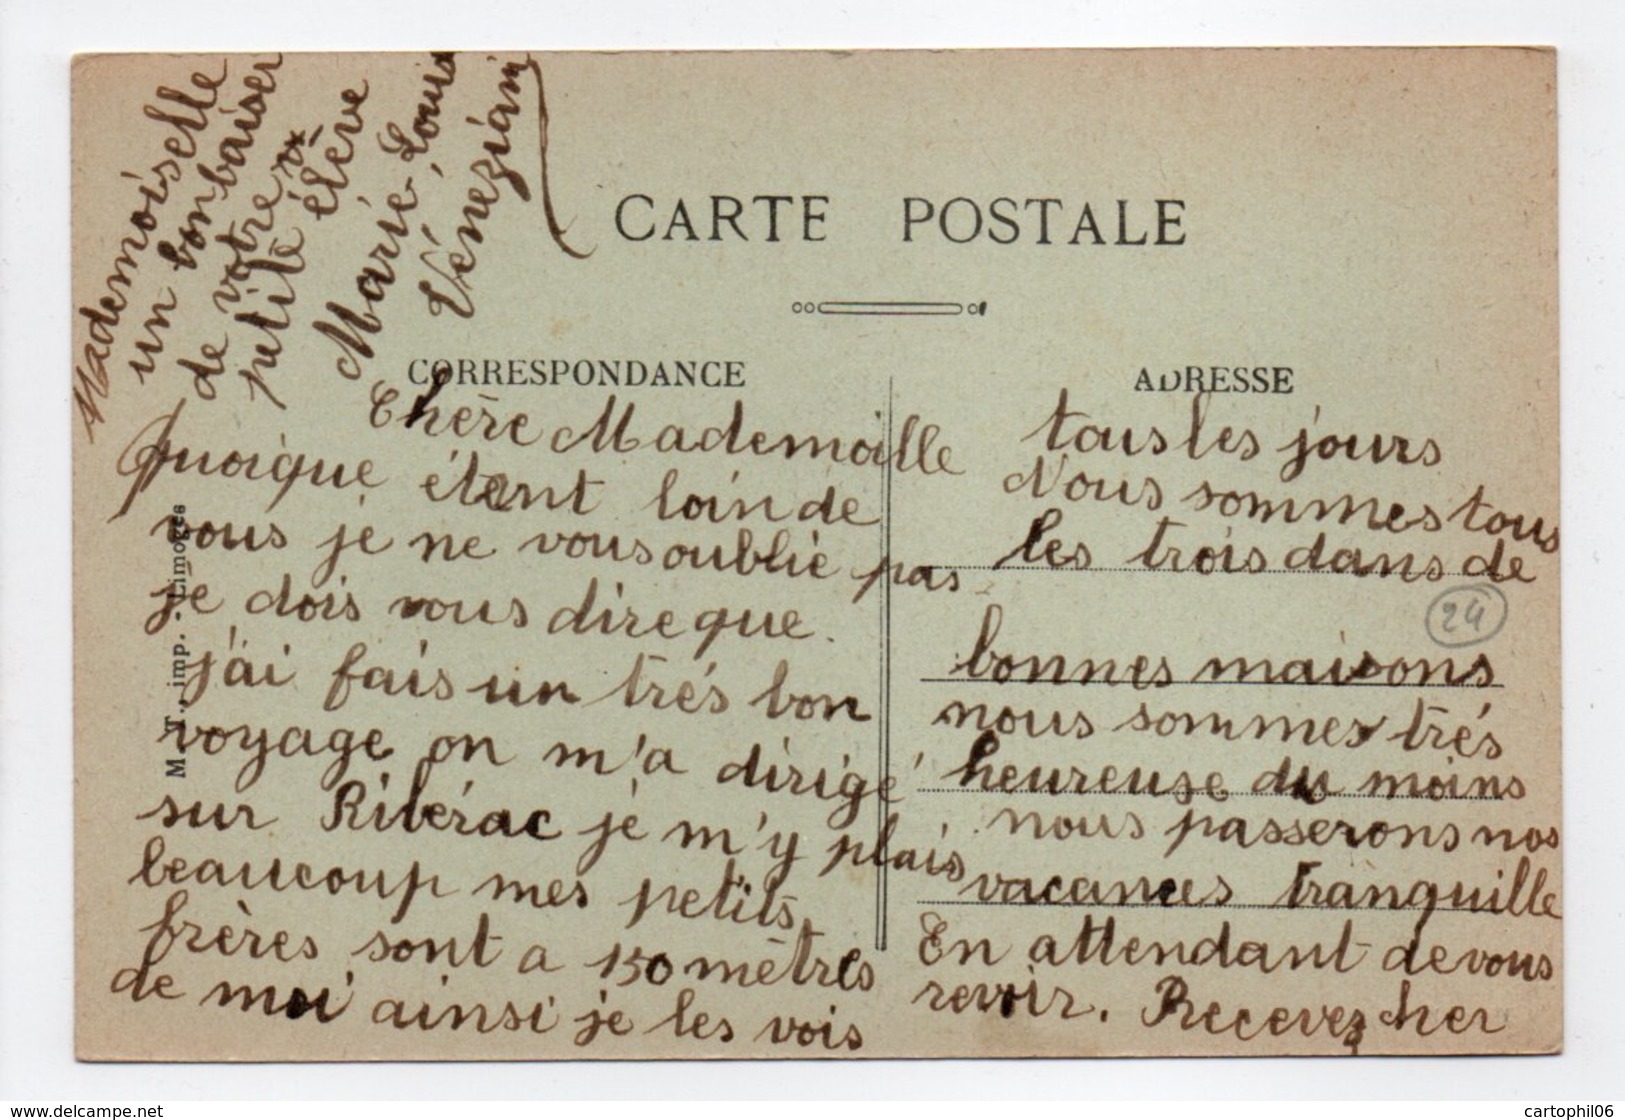 CARTE POSTALE
CORRESPONDANCE
Chère Mademoille
quoique étant loin de
vous je ne vous oublie pas
je dois vous dire que.
j'ai fais un trés bon
voyage on m'a dirigé
sur Ribérac je m'y plais
beaucoup mes petits
frères sont a 150 mètres
de moi ainsi je les vois
ADRESSE
tous les jours
Nous sommes tous
les trois dans de
24
bonnes maisons
nous sommes trés
heureuse du moins
nous passerons nos
vacances tranquille
En attendant de vous
revoir. Recevez cher
Mademoiselle
un bon baiser
de votre
petite élève
Marie-Louise
Véneziani
M. T., imp. - Limoges
delcampe.net
cartophil06